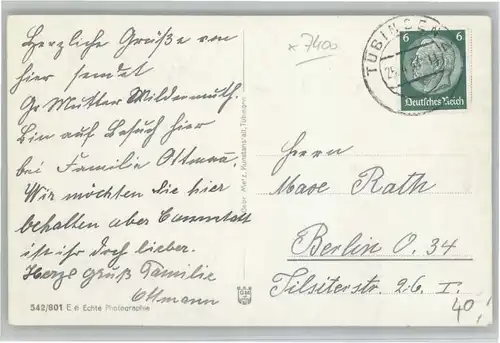 Herzliche Grüße von
hier sendet
Gr. Mutter Wildermuth.
Bin auf Besuch hier
bei Familie Ottmann.
Wir möchten Sie hier
behalten aber Cannstatt
ist ihr doch lieber.
Herzl Gruß Familie
Ottmann
542/801 E e Echte Photographie
Metz, Kunstanstalt, Tübingen
x 7400
TÜBINGEN
6 6
Deutsches Reich
Herrn
Rath
Berlin O. 34
Tilsiterstr. 26 I.
40,!